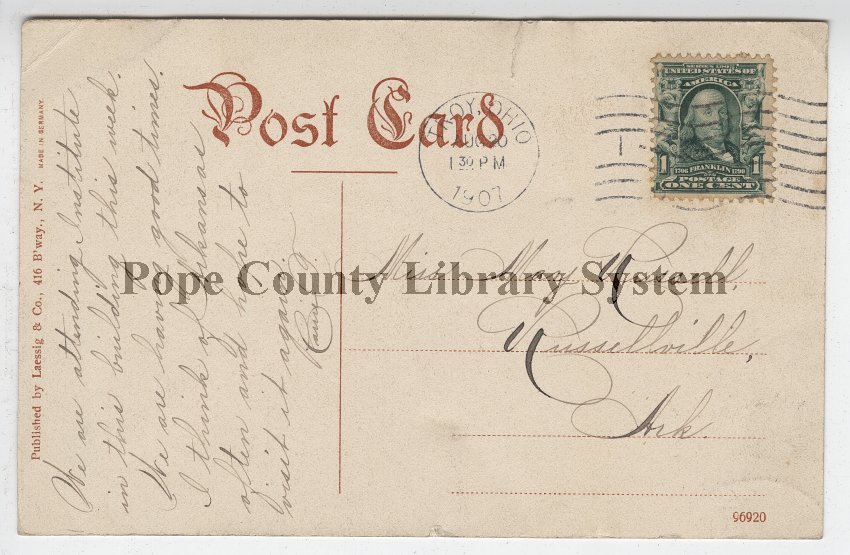 Post Card
TROY, OHIO
AUG 20
1 30 PM
1907
SERIES 1902
UNITED STATES OF
AMERICA
1 1706 FRANKLIN 1790 1
POSTAGE
ONE CENT
Published by Laessig & Co., 416 B'way., N. Y. MADE IN GERMANY.
We are attending Institute
in this building this week.
We are having good times.
I think of Arkansas
often and hope to
visit it again.
Pope County Library System
Miss May Russell,
Russellville,
Ark.
96920